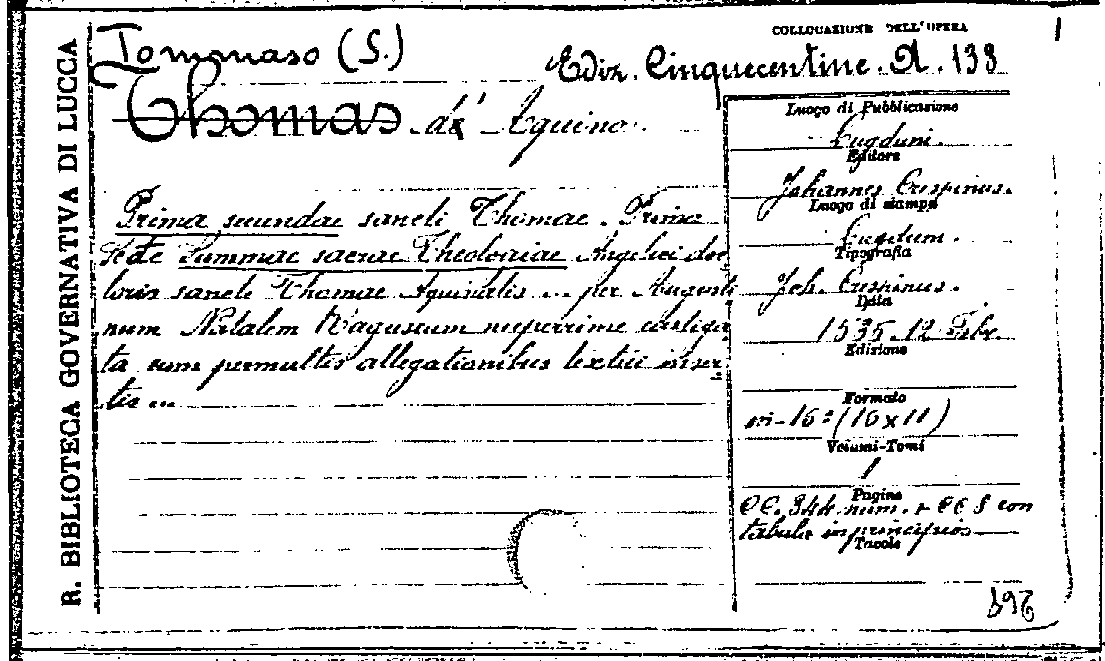 R. BIBLIOTECA GOVERNATIVA DI LUCCA
Tommaso (S.)
Thomas d' Aquino.
COLLOCAZIONE DELL'OPERA
Ediz. Cinquecentine. A. 138
Prima secundae sancti Thomae. Prima
Summae sacrae Theologiae Angelici doc
toris sancti Thomae Aquinatis ... per Augusti
num Natalem Raguseum nuperrime castiga
ta cum permultis allegationibus textui inser
tis ...
Luogo di Pubblicazione
Lugduni.
Editore
Johannes Crispinus.
Luogo di stampa
Lugdum.
Tipografia
Joh. Crispinus.
Data
1535. 12 Febr.
Edizione
Formato
in-16° (16 x 11)
Volumi-Tomi
1
Pagine
cc. 344 num. + cc 8 con
tabula in principio
Tavole